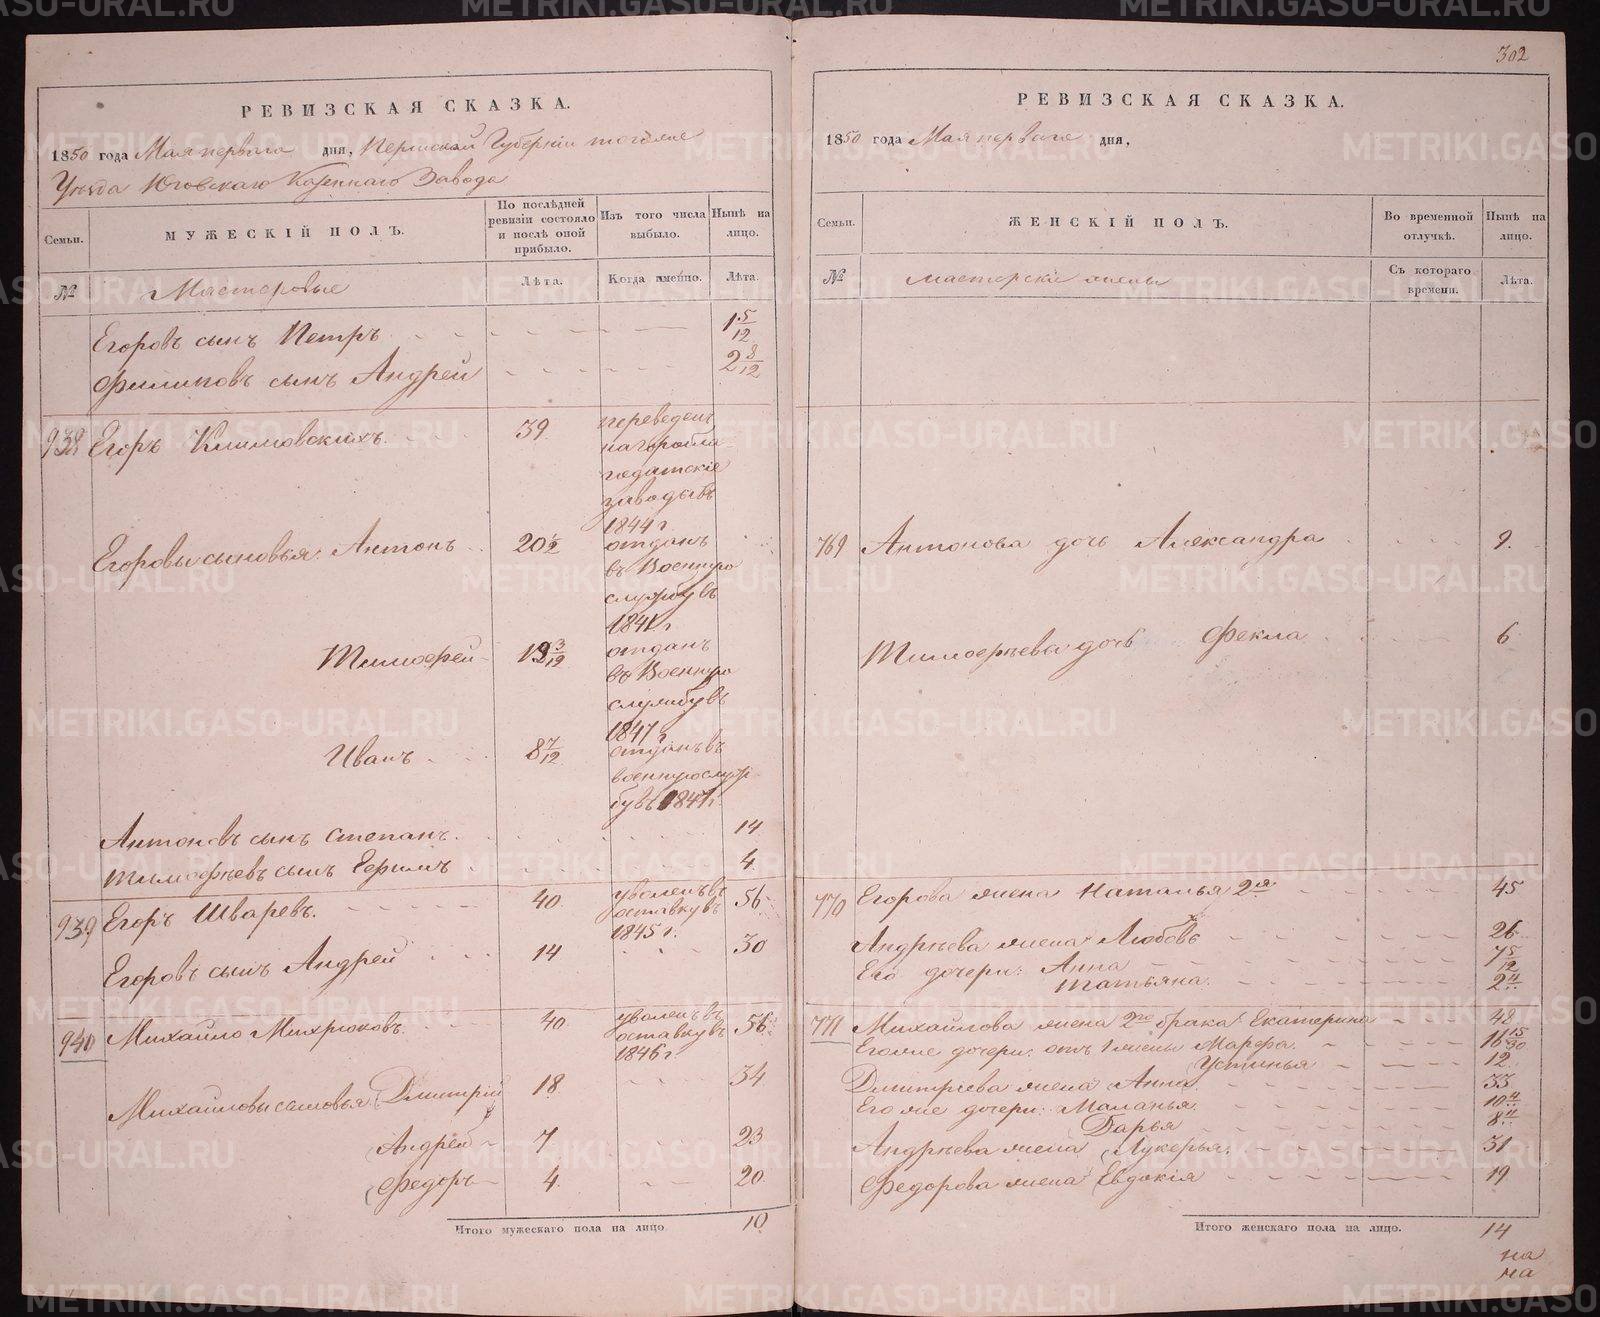 302
РЕВИЗСКАЯ СКАЗКА.
1850 года Мая перваго дня, Пермской Губерніи тогоже
Уезда Юговскаго Казеннаго Завода
Семьи.
МУЖЕСКІЙ ПОЛЪ.
По послѣдней ревизіи состояло и послѣ оной прибыло.
Изъ того числа выбыло.
Нынѣ на лицо.
№
Мастеровые
Лѣта.
Когда именно.
Лѣта.
Егоровъ сынъ Петръ 1 5/12
Филиповъ сынъ Андрей 2 8/12
938 Егоръ Климовскихъ. 39. переведенъ
на горобла-
годатскіе
заводы въ
1844 г
Егоровы сыновья: Антонъ 20 1/2 отданъ
въ Военную
службу въ
1841 г
Тимофей 19 3/12 отданъ
въ Военную
службу въ
1847 г
Иванъ 8 7/12 отданъ въ
военную служ
бу въ 1847 г.
Антоновъ сынъ Степанъ. 14
Тимофѣевъ сынъ Ефимъ 4.
939 Егоръ Шваревъ. 40. уволенъ въ 56.
оставку въ
1845 г.
Егоровъ сынъ Андрей 14 30
940 Михайло Михрюковъ. 40. уволенъ въ 56.
оставку въ
1846 г
Михайловы сыновья Дмитрій 18. 34
Андрей 7 23
Федоръ 4. 20
Итого мужескаго пола на лицо. 10.
РЕВИЗСКАЯ СКАЗКА.
1850 года Мая перваго дня,
Семьи.
ЖЕНСКІЙ ПОЛЪ.
Во временной отлучкѣ.
Нынѣ на лицо.
№
мастерскіе жены
Съ котораго времени.
Лѣта.
769 Антонова дочь Александра 9.
Тимофѣева дочь Фекла 6
770 Егорова жена Наталья 2я 45
Андрѣева жена Любовь 26
Его дочери: Анна 7 5/12
Татьяна. 2 4/"
771 Михайлова жена 2го брака: Екатерина 48
Егоже дочери: отъ 1 жены Марфа. 16 15/30
Устинья 12
Дмитріева жена Анна 33
Его же дочери: Маланья. 10 4/"
Дарья 8 "/"
Андрѣева жена Лукерья. 31
Федорова жена Евдокія 19
Итого женскаго пола на лицо. 14
на
на
METRIKI.GASO-URAL.RU